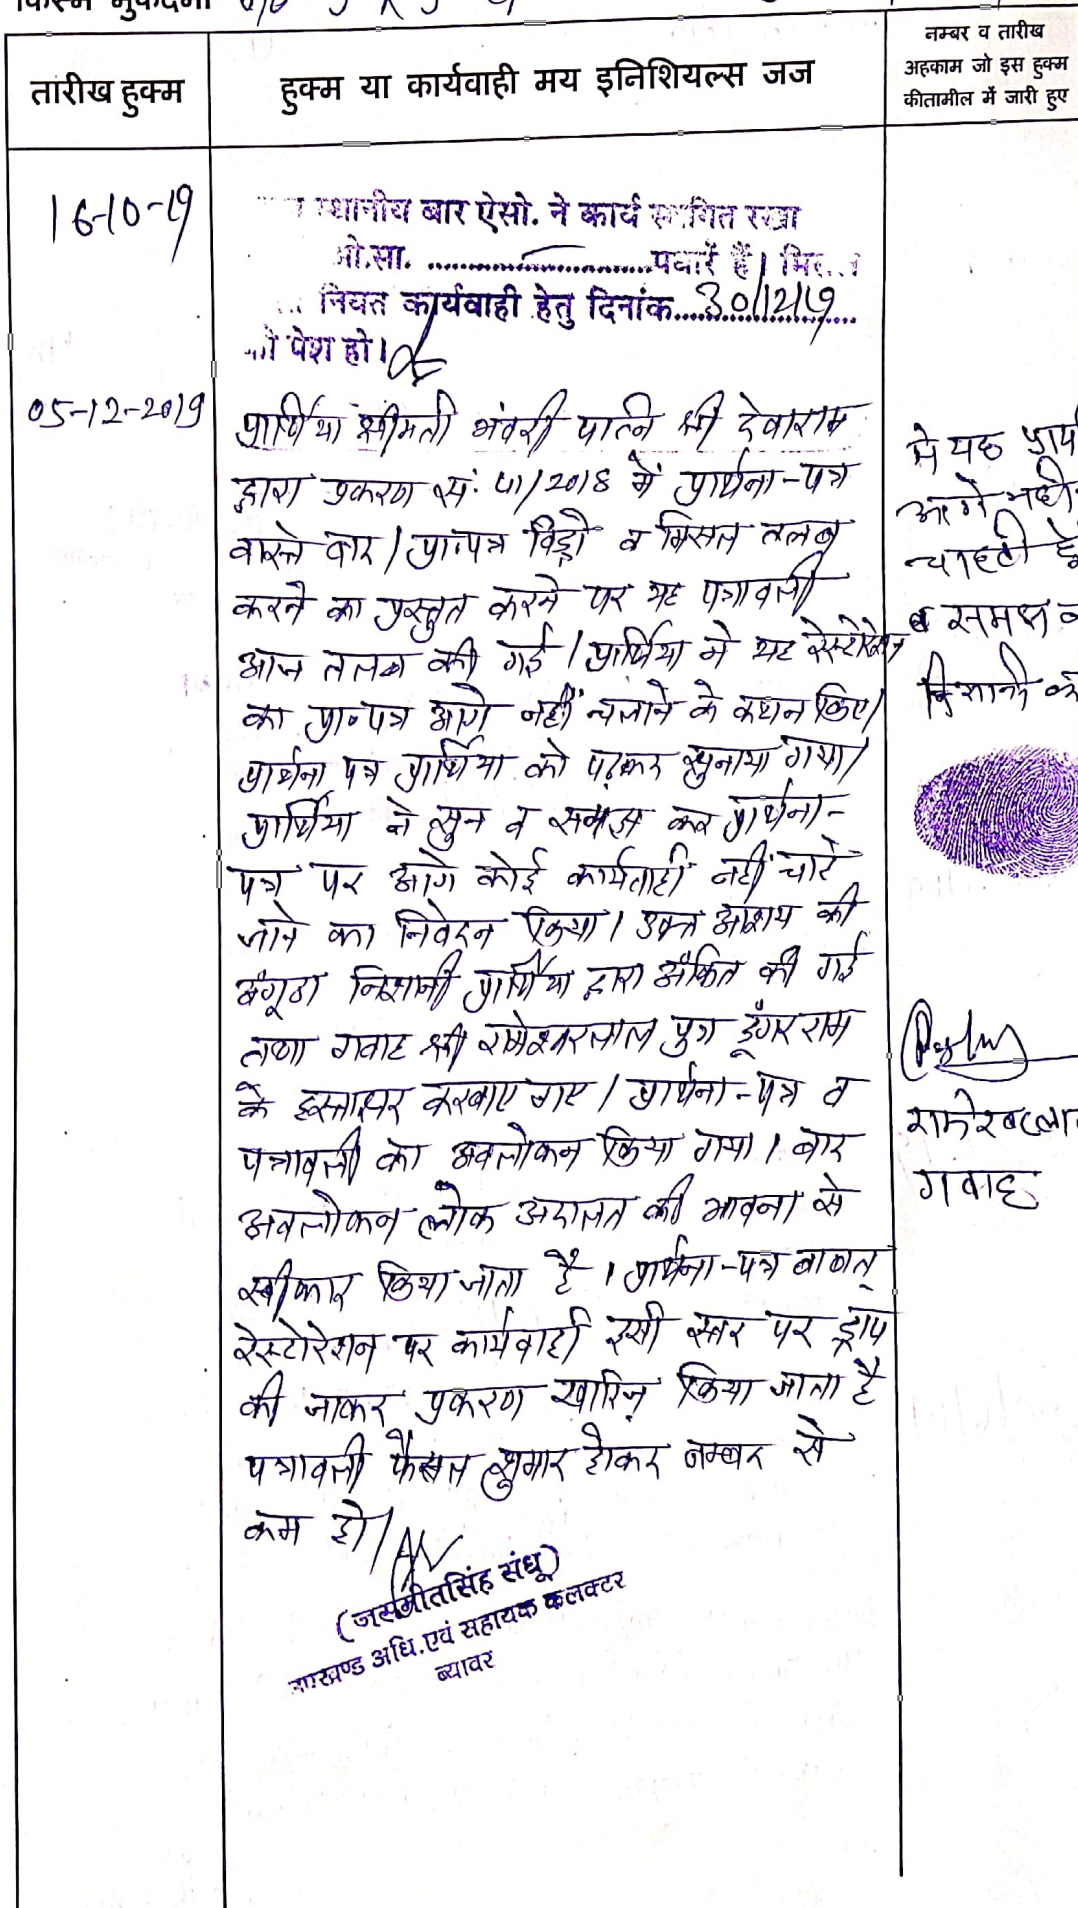 किस्म मुकदमा
तारीख हुक्म
हुक्म या कार्यवाही मय इनिशियल्स जज
नम्बर व तारीख
अहकाम जो इस हुक्म
कीतामील में जारी हुए
16-10-19
स्थानीय बार ऐसो. ने कार्य स्थगित रखा
ओ.सा. .................... पधारें हैं।
नियत कार्यवाही हेतु दिनांक....30/12/19
को पेश हो।
05-12-2019
प्रार्थिया श्रीमती भंवरी पत्नि श्री देवाराम
द्वारा प्रकरण सं. 41/2018 में प्रार्थना-पत्र
वास्ते वाद/प्रा०पत्र विड्रो व मिसल तलब
करने का प्रस्तुत करने पर यह पत्रावली
आज तलब की गई। प्रार्थिया ने यह रेस्टोरेशन
का प्रा०पत्र आगे नहीं चलाने के कथन किए।
प्रार्थना पत्र प्रार्थिया को पढ़कर सुनाया गया।
प्रार्थिया ने सुन व समझ कर प्रार्थना-
पत्र पर आगे कोई कार्यवाही नहीं चाहे
जाने का निवेदन किया। उक्त आशय की
अंगूठा निशानी प्रार्थिया द्वारा अंकित की गई
तथा गवाह श्री रामेश्वरलाल पुत्र डूंगरराम
के हस्ताक्षर करवाए गए। प्रार्थना-पत्र व
पत्रावली का अवलोकन किया गया। बाद
अवलोकन लोक अदालत की भावना से
स्वीकार किया जाता है। प्रार्थना-पत्र बाबत्
रेस्टोरेशन पर कार्यवाही इसी स्तर पर ड्रॉप
की जाकर प्रकरण खारिज किया जाता है
पत्रावली फैसल शुमार होकर नम्बर से
कम हो।
(जसमीतसिंह संधू)
उपखण्ड अधि. एवं सहायक कलक्टर
ब्यावर
मे यह
आगे नही
चाहती
व समक्ष
निशानी
गवाह